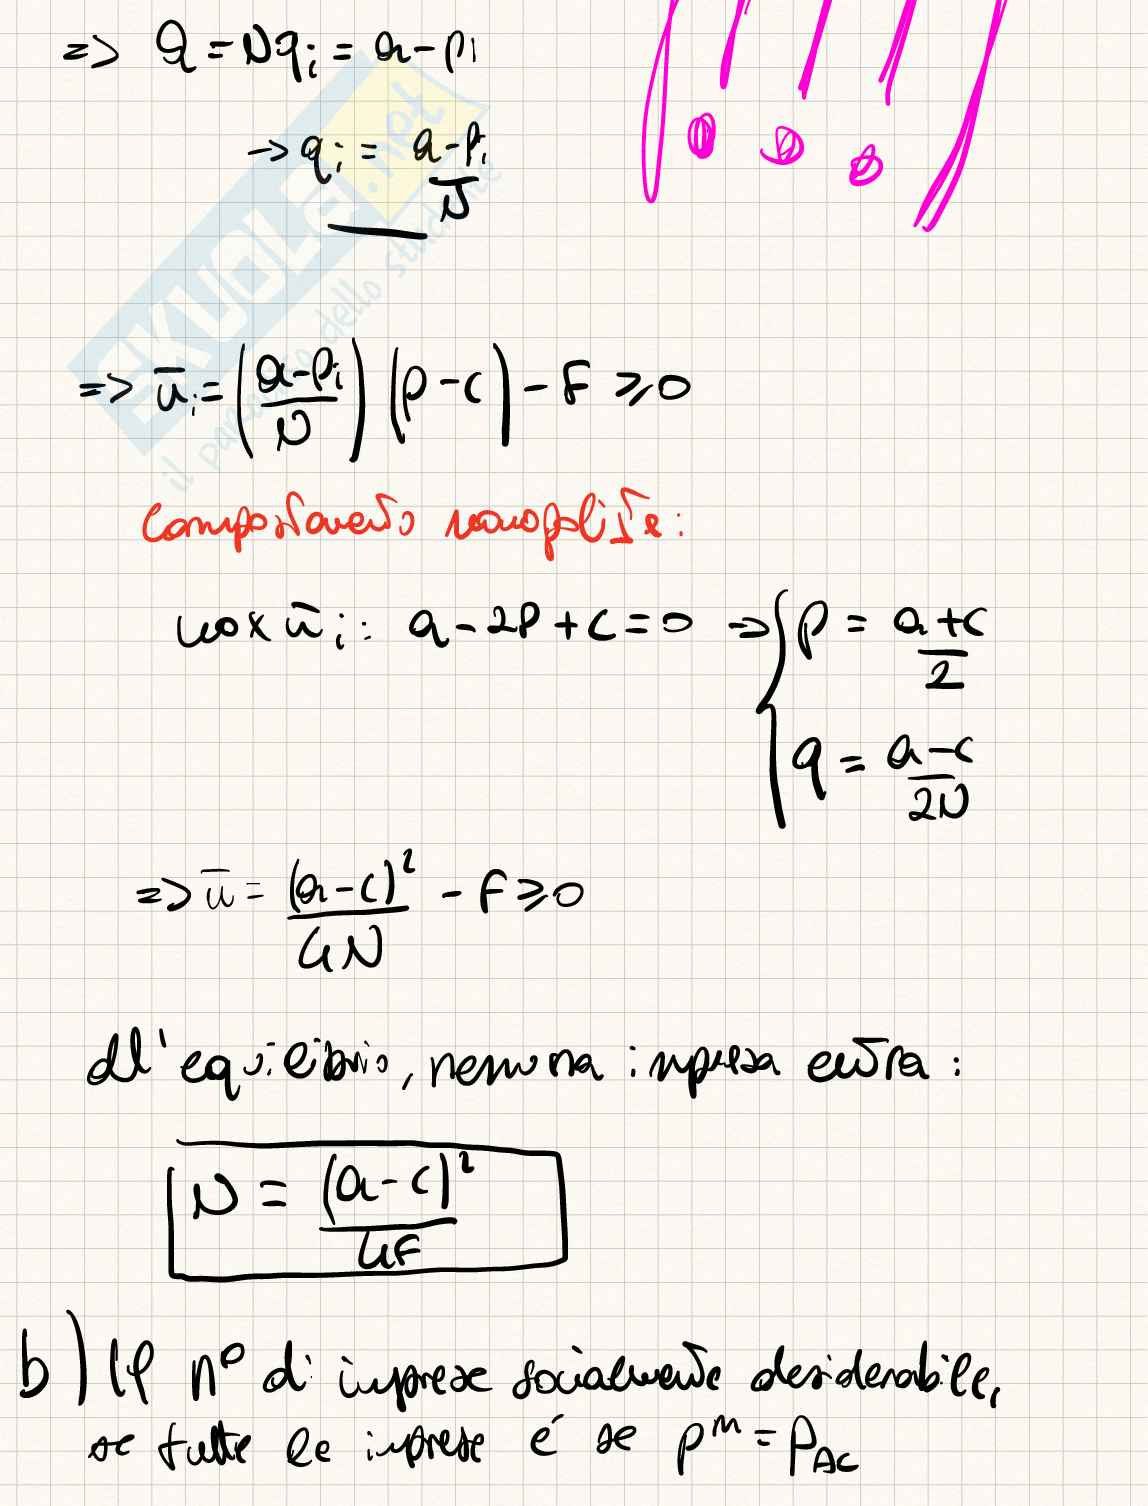 => Q = Nqi = a - pi
→ qi = (a - pi)/N
SKUOLA.net
il paradiso dello studente
=> ūi = ((a - pi)/N) (p - c) - F ⩾ 0
Comportamento monopoliste:
max ūi: a - 2P + c = 0 → { p = (a + c)/2
q = (a - c)/2N
=> ū = (a - c)²/4N - F ⩾ 0
all'equilibrio, nessuna impresa entra:
N = (a - c)²/4F
b) Il n° di imprese socialmente desiderabile,
se tutte le imprese é se pᵐ = P_AC